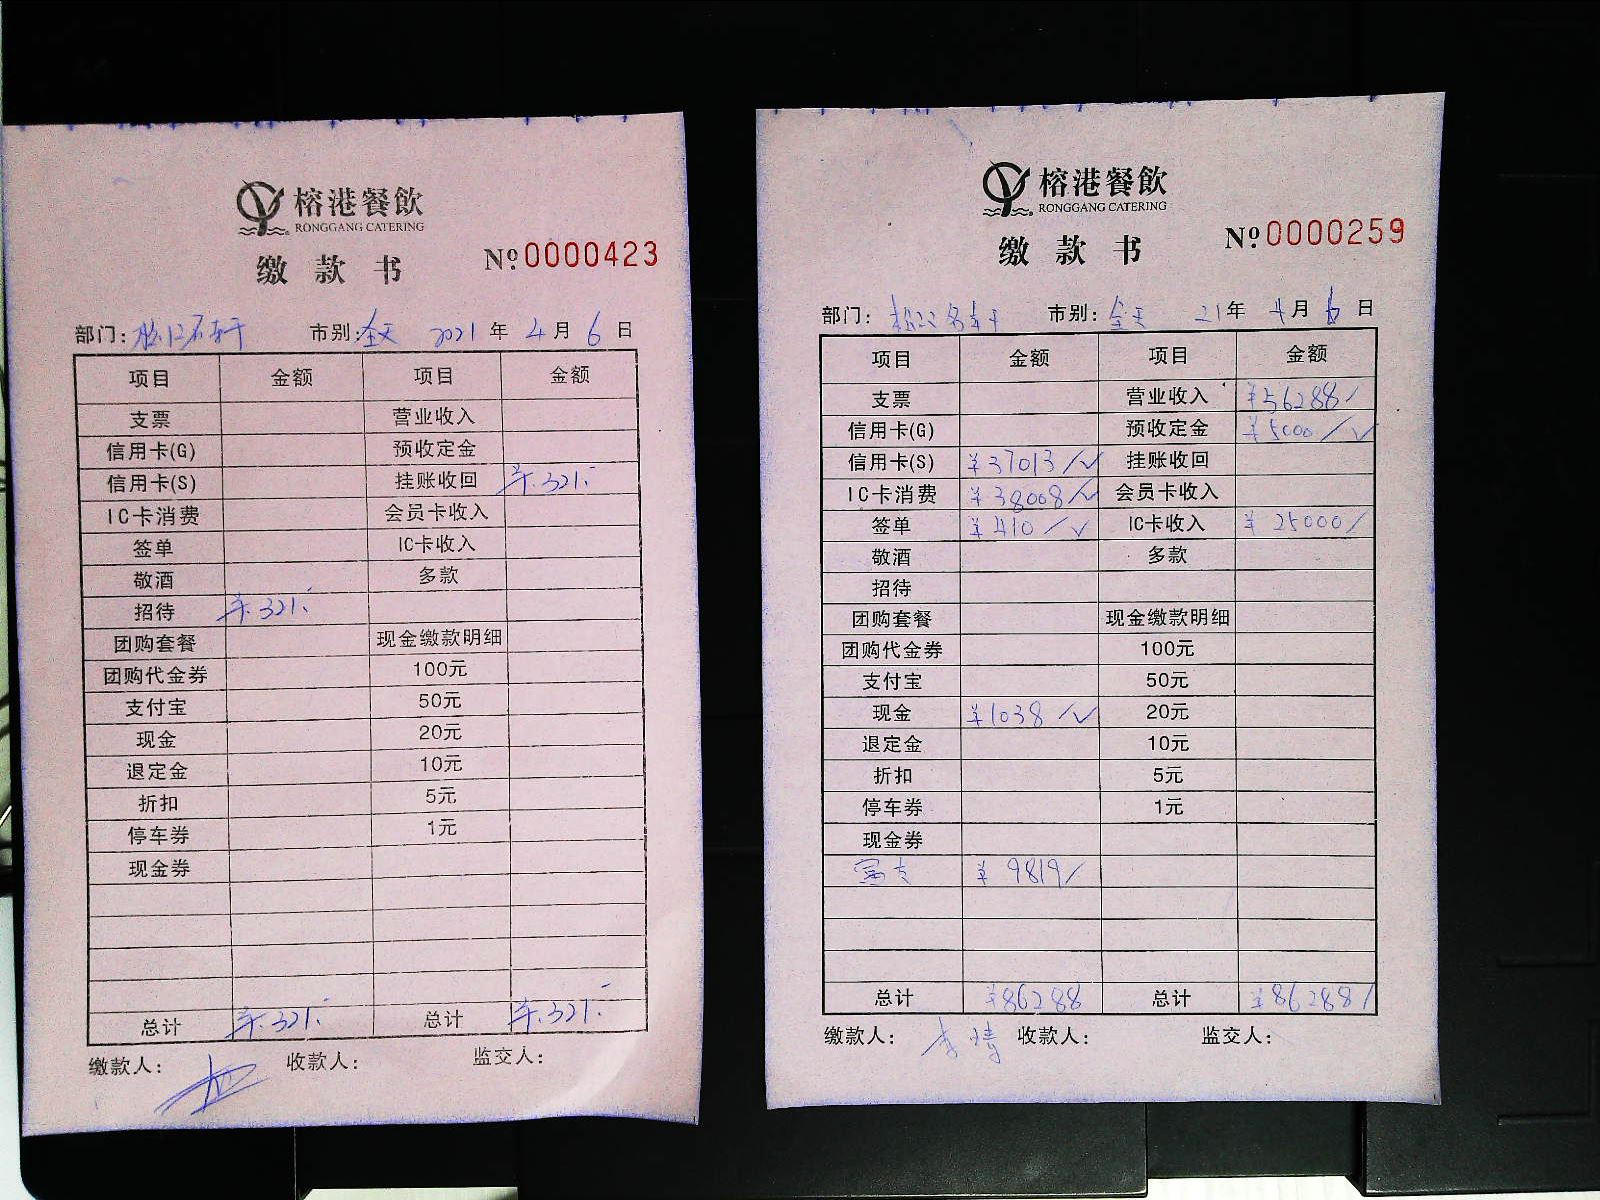 榕港餐飲
RONGGANG CATERING
缴款书
Nº:0000423
部门: 市别:全天 2021年4月6日
项目 金额 项目 金额
支票 营业收入
信用卡(G) 预收定金
信用卡(S) 挂账收回 ¥.321.-
IC卡消费 会员卡收入
签单 IC卡收入
敬酒 多款
招待 ¥.321.-
团购套餐 现金缴款明细
团购代金券 100元
支付宝 50元
现金 20元
退定金 10元
折扣 5元
停车券 1元
现金券
总计 ¥.321.- 总计 ¥.321.-
缴款人: 收款人: 监交人:
榕港餐飲
RONGGANG CATERING
缴款书
Nº:0000259
部门: 市别:全天 21年4月6日
项目 金额 项目 金额
支票 营业收入 ¥56288/
信用卡(G) 预收定金 ¥5000/✓
信用卡(S) ¥37013/✓ 挂账收回
IC卡消费 ¥38008/✓ 会员卡收入
签单 ¥410/✓ IC卡收入 ¥25000/
敬酒 多款
招待
团购套餐 现金缴款明细
团购代金券 100元
支付宝 50元
现金 ¥1038/✓ 20元
退定金 10元
折扣 5元
停车券 1元
现金券
¥9819/
总计 ¥86288 总计 ¥86288/
缴款人: 收款人: 监交人: